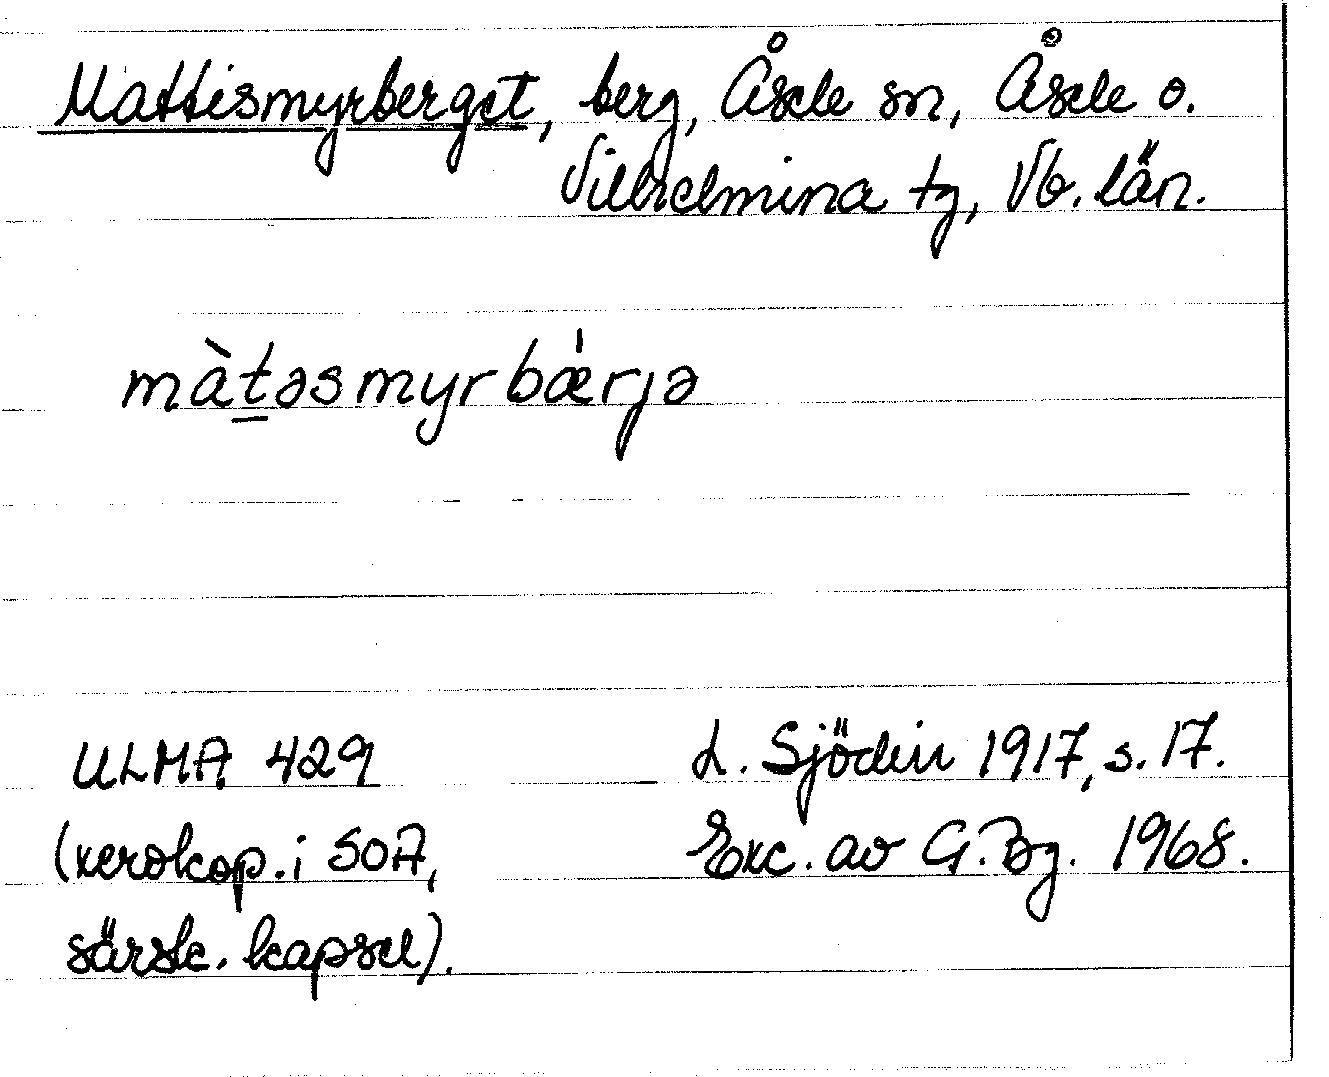 Mattismyrberget, berg, Åsele sn, Åsele o.
Vilhelmina tg, Vb. län.
màt̲əsmyrbǽrjə
ULMA 429
L. Sjödin 1917, s. 17.
(xerokop. i SOA,
Exc. av G. Bg. 1968.
särsk. kapsel).